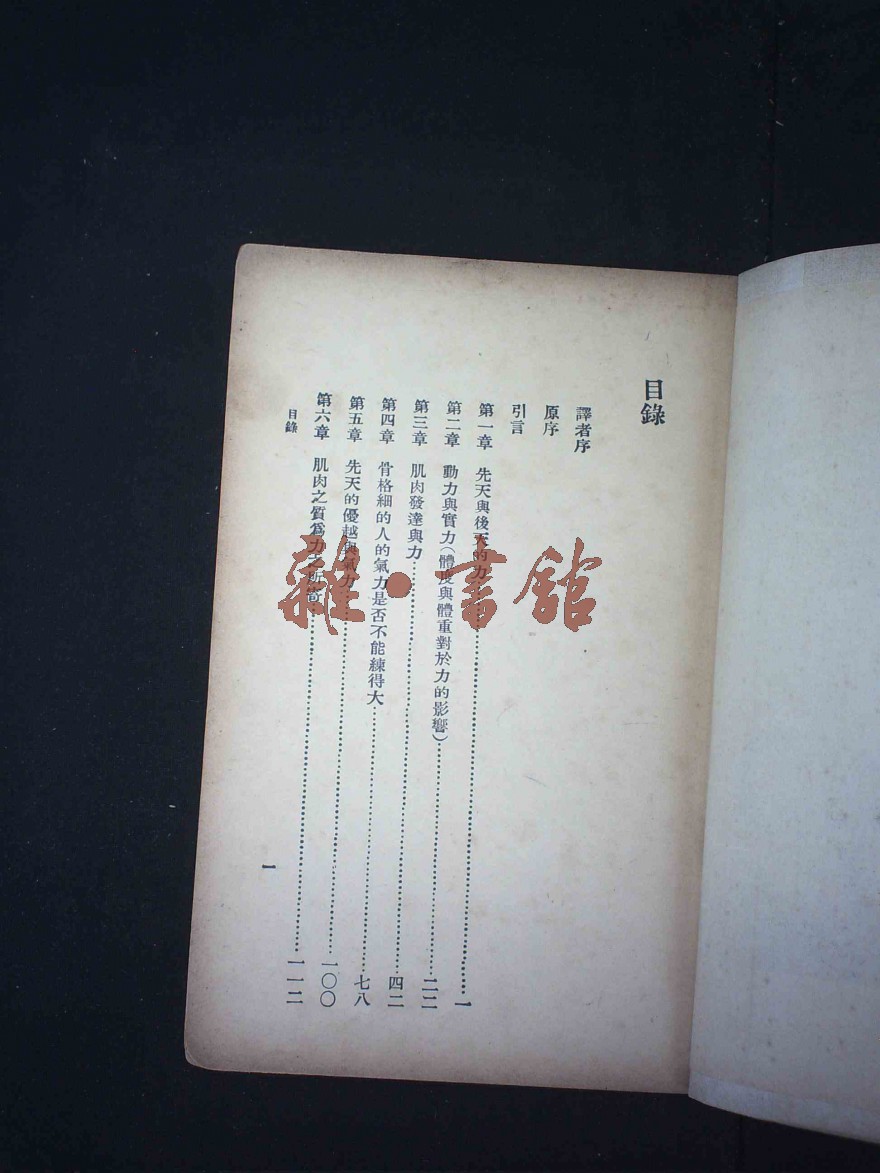 目錄
譯者序
原序
引言
第一章 先天與後天的力………一
第二章 動力與實力(體度與體重對於力的影響)………二二
第三章 肌肉發達與力………四二
第四章 骨格細的人的氣力是否不能練得大………七八
第五章 先天的優越與氣力………一〇〇
第六章 肌肉之質爲力之所寄………一一二
目錄
一
雜·書館